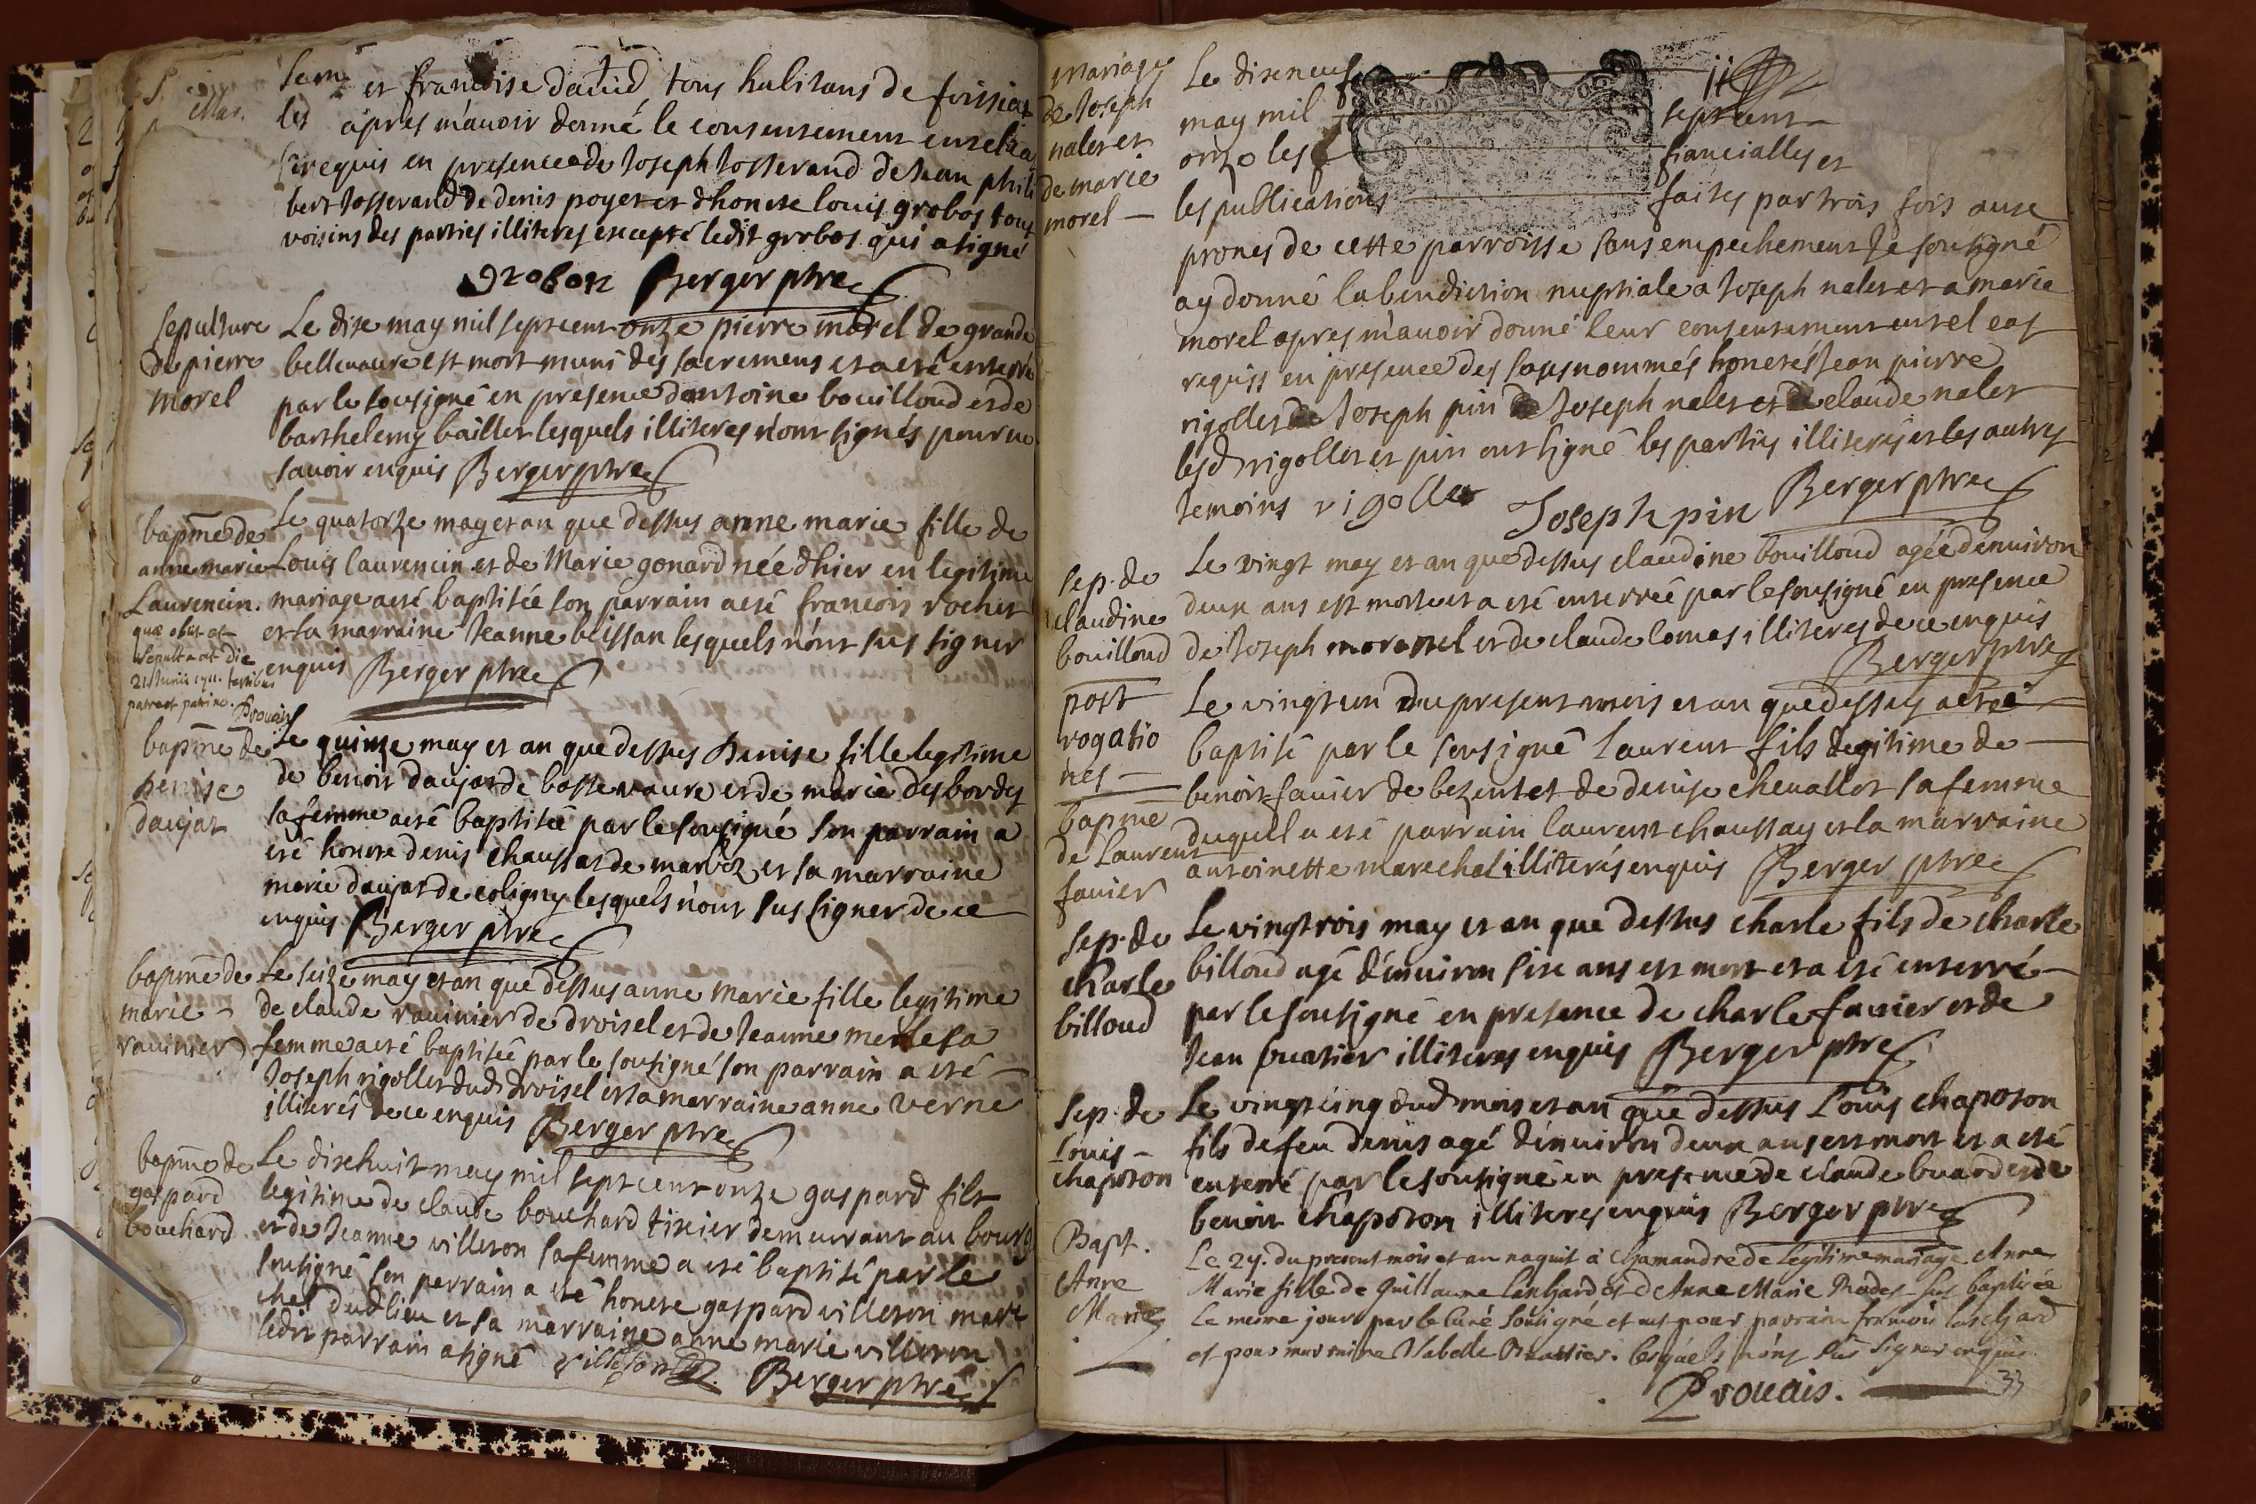 et francoise david tous habitans de foissiat
apres m'auoir donné le consentement
requis en presence de Joseph Josserand de Jean phili
bert Josserand de denis poyet et d'honete louis grobos tous
voisins des parties illiteres excepté ledit grobos qui a signé
grobon Berger ptre
sepulture
de pierre
morel
Le dixe may mil sept cent onze pierre morel de grande
bellevaure est mort muni des sacremens et a eté enterré
par le sousigné en présence dantoine bouilloud et de
barthelemy bailler lesquels illiteres n'ont signés pour ne
sauoir enquis Berger ptre
bapme de
anne marie
Laurencin.
quæ obiit et
sepulta est die
21 Junii 1711. testibus
patre et patrino.
Prouais
Le quatorze may et an que dessus anne marie fille de
Louis laurencin et de Marie gonard née d'hier en legitime
mariage a eté baptisée son parrain a eté francois rochet
et sa marraine Jeanne buissan lesquels n'ont sus signer
enquis Berger ptre
bapme de
denise
daujat
Le quinze may et an que dessus Denise fille legitime
de benoit daujat de basse vaure et de marie desbordes
sa femme a eté baptisée par le sousigné son parrain a
eté honete denis chaussat de marboz et sa marraine
marie daujat de coligny lesquels n'ont sus signer de ce
enquis Berger ptre
bapme de
marie
rauinier
Le seize may et an que dessus anne marie fille legitime
de claude rauinier de droisel et de Jeanne merle sa
femme a eté baptisée par le sousigné son parrain a eté
Joseph rigollet dud droisel et sa marraine anne verne
illiterés de ce enquis Berger ptre
bapme de
gaspard
bouchard
Le dixehuit may mil sept cent onze gaspard fils
legitime de claude bouchard tixier demeurant au bourg
et de Jeanne villeton sa femme a eté baptisé par le
sousigné son parrain a eté honete gaspard villeton mare
chal dud lieu et sa marraine anne marie villeton
ledit parrain a signé villeton
Berger ptre
mariage
de Joseph
nalet et
de marie
morel
Le dixeneuf
may mil sept cent
onze les fiancialles et
les publications faites par trois fois aux
prones de cette parroisse sans empechement Je sousigné
ay donné la bendiction nuptiale a Joseph nalet et a marie
morel apres m'auoir donné leur consentement en tel cas
requiss en presence des sousnommés honetes Jean pierre
rigollet de Joseph pin de Joseph nalet et de claude nalet
lesd rigollet et pin ont signé les parties illiterés et les autres
temoins rigollet Joseph pin Berger ptre
sep. de
claudine
bouilloud
Le vingt may et an que dessus claudine bouilloud agée denuiron
deux ans est morte et a eté enterreé par le sousigné en presence
de Joseph morel et de claude comas illiteres de ce enquis
Berger ptre
post
rogatio
nes
bapme
de Laurent
fauier
Le vingt un du present mois et an que dessus a eté
baptisé par le sousigné Laurent fils legitime de
benoit fauier de bezentet et de denise cheuallot sa femme
duquel a eté parrain laurent chaussay et la marraine
antoinette marechal illiterés enquis Berger ptre
sep. de
charle
billoud
Le vingt trois may et an que dessus charle fils de charle
billoud agé d'enuiron sixe ans est mort et a eté enterré
par le sousigné en presence de charle fauier et de
Jean buatier illiteres enquis Berger ptre
sep. de
Louis
chaposon
Le vingt cinq dud mois et an que dessus Louis chaposon
fils de feu denis agé d'enuiron deux ans est mort et a eté
enterré par le sousigné en presence de claude buard et de
benoit chaposon illiteres enquis Berger ptre
Bapt.
Anne
Marie
Le 29. du present mois et an naquit à Chamandré de Legitime mariage Anne
Marie fille de Guillaume Lanhard et d'Anne Marie Rodet fut baptisée
Le meme jour par le Curé sousigné et eut pour parrain francois
et pour marraine Isabelle Buattier. lesquels n'ont sus signer enquis.
Prouais.
33